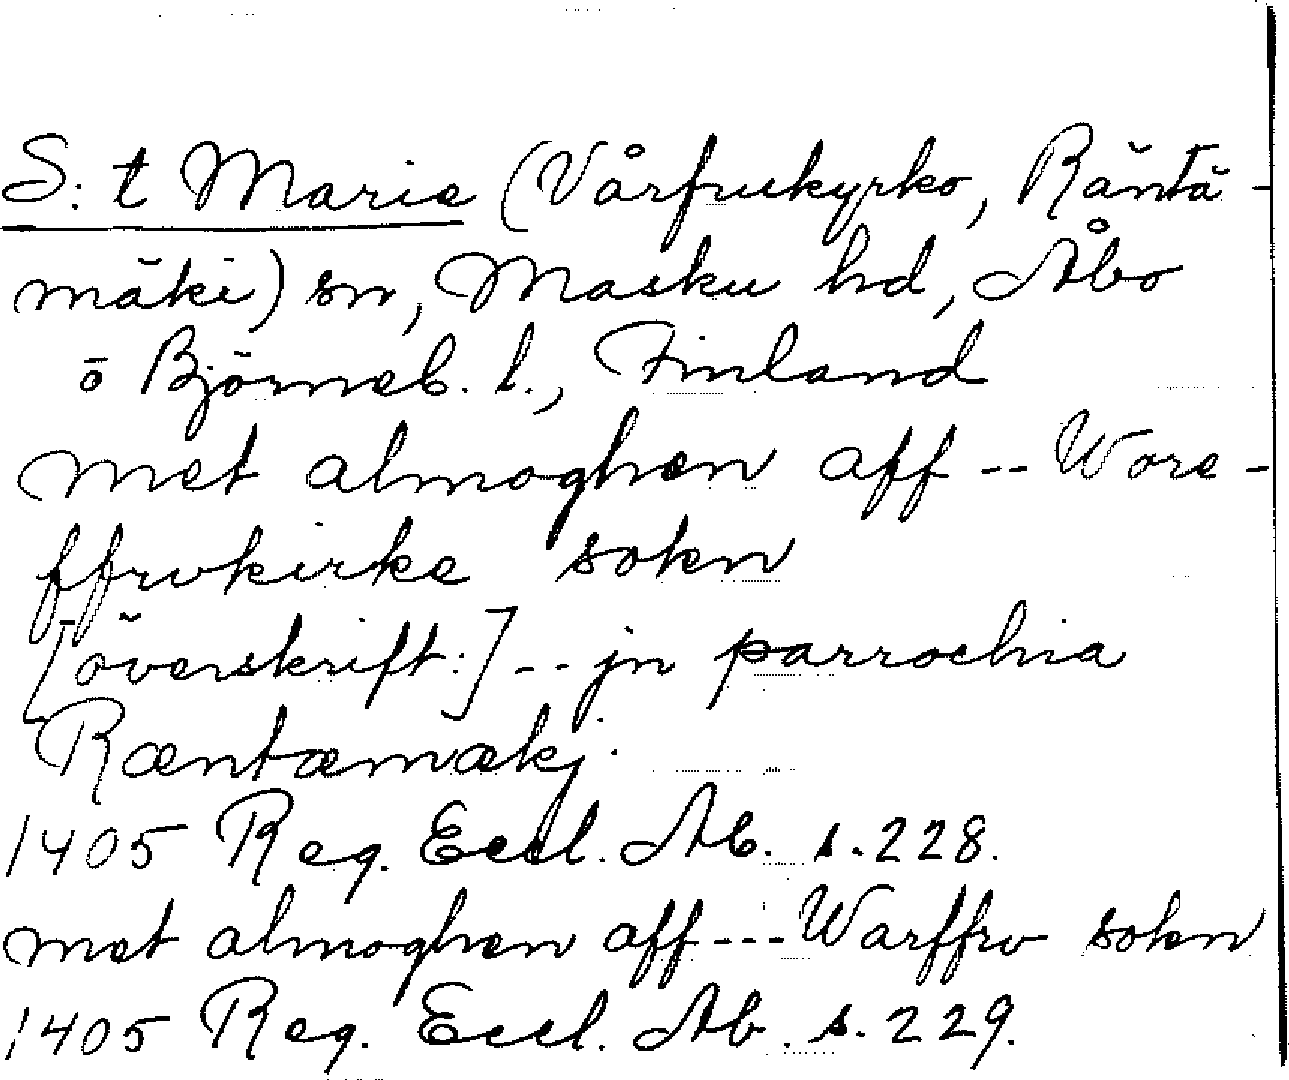 S:t Marie (Vårfrukyrko, Räntä-
mäki) sn, Masku hd, Åbo
o Björneb. l., Finland
met almoghen aff -- Wore-
ffrvkirke sokn
[överskrift:] -- jn parrochia
Ræntæmækj.
1405 Reg. Eccl. Ab. s. 228.
met almoghen aff --- Warffrv sokn
1405 Reg. Eccl. Ab. s. 229.